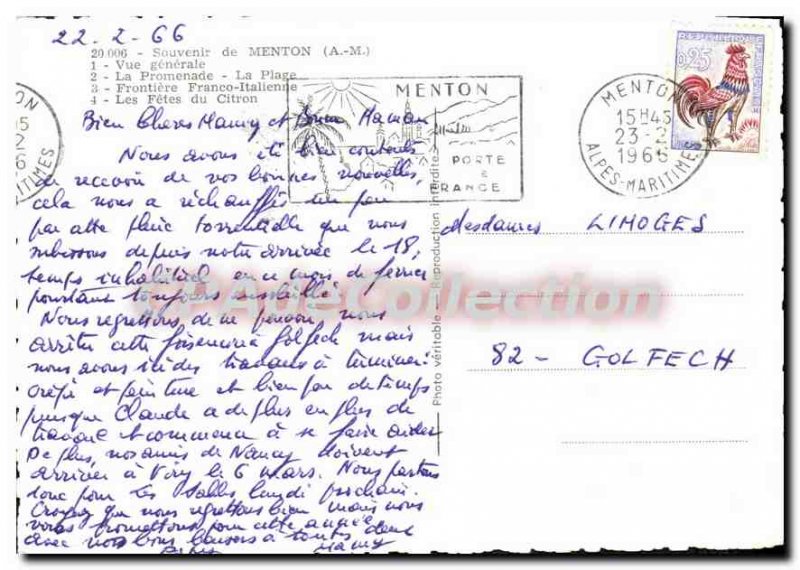 22-2-66
20.006 - Souvenir de MENTON (A.-M.)
1 - Vue générale
2 - La Promenade - La Plage
3 - Frontière Franco-Italienne
4 - Les Fêtes du Citron
MENTON
PORTE
&
FRANCE
MENTON
15H45
23-2
1966
ALPES-MARITIMES
0,25
Bien Chères Mamy et Maman
Nous avons été bien contents
de recevoir de vos bonnes nouvelles,
cela nous a réchauffés un peu
par cette pluie torrentielle que nous
subissons depuis notre arrivée le 18,
temps inhabituel en ce mois de février
pourtant toujours ensoleillé.
Nous regrettons de ne pouvoir nous
arrêter cette fois à Golfech mais
nous avons des travaux à terminer
crépi et peinture et bien peu de temps
puisque Claude a de plus en plus de
travail et commence à se faire aider
De plus, nos amis de Nancy doivent
arriver à Viry le 6 mars. Nous partons
donc pour Les Salles lundi prochain.
Croyez que nous regrettons bien mais nous
vous promettons pour cette année
avec nos bons baisers à toutes deux
Mamy
Photo véritable - Reproduction interdite
Mesdames LIMOGES
82 - GOLFECH
CPA de Collection